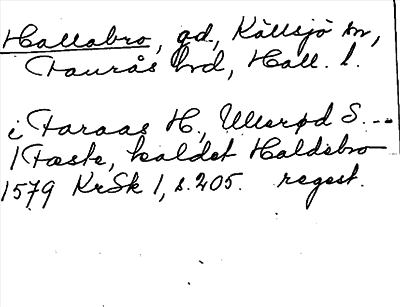 Hallabro, gd, Källsjö sn,
Faurås hd, Hall. l.
i Faraas H., Ullerød S. ---
1 Fæste, kaldet Haldebro
1579 KrSk 1, s. 205. regest.